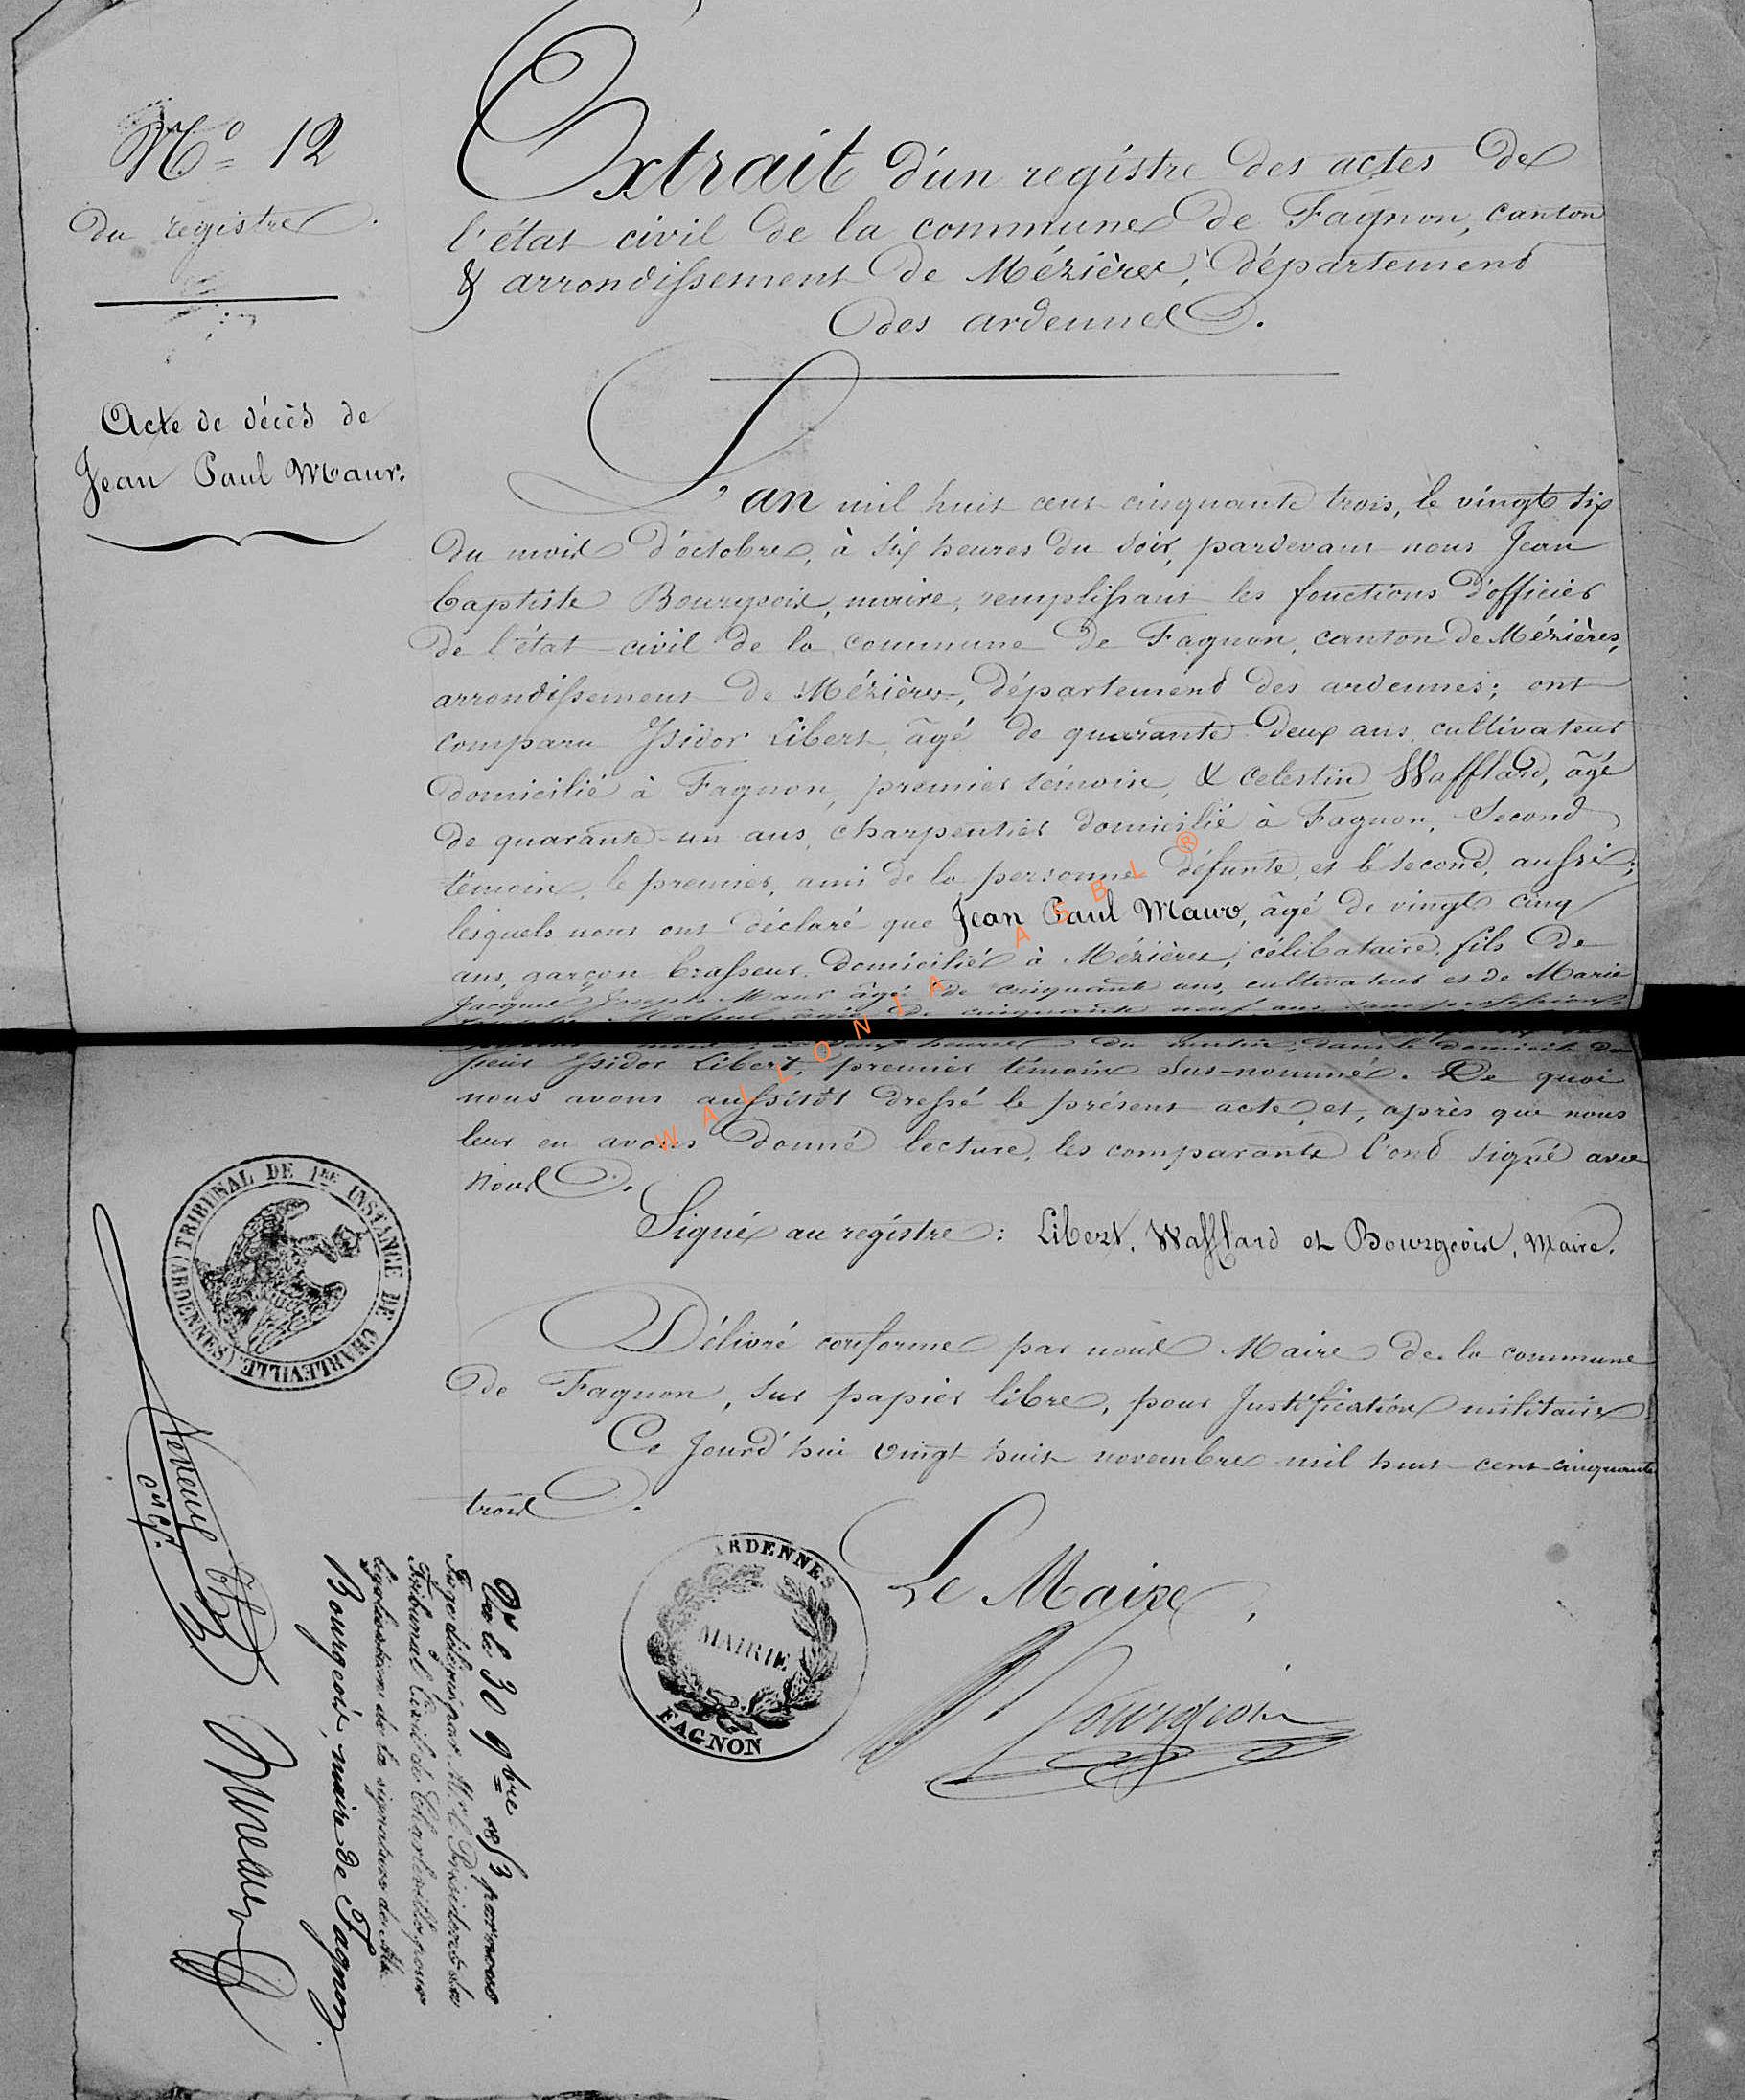 N.º 12
du registre.
Acte de décès de
Jean Paul Maur.
Extrait d'un registre des actes de
l'état civil de la commune de Fagnon, canton
& arrondissement de Mézières, département
des ardennes.
L'an mil huit cent cinquante trois, le vingt six
du mois d'octobre, à six heures du soir, pardevant nous Jean
baptiste Bourgeois, maire, remplissant les fonctions d'officier
de l'état civil de la commune de Fagnon, canton de Mézières,
arrondissement de Mézières, département des ardennes; ont
comparu Isidor Libert, âgé de quarante deux ans, cultivateur
domicilié à Fagnon, premier témoin, & Celestin Wafflard, âgé
de quarante-un ans, charpentier domicilié à Fagnon, Second
témoin, le premier, ami de la personne défunte, et le second, aussi;
lesquels nous ont déclaré que Jean Paul Maur, âgé de vingt cinq
ans, garçon brasseur, domicilié à Mézières, célibataire, fils de
Jacques Joseph Maur âgé de cinquante ans, cultivateur et de Marie
âgée de cinquante neuf ans, sans profession
heures du matin, dans le domicile du
sieur Isidor Libert, premier témoin sus-nommé. De quoi
nous avons aussitôt dressé le présent acte, et, après que nous
leur en avons donné lecture, les comparants l'ont signé avec
Nous.
Signé au registre: Libert, Wafflard et Bourgeois, Maire.
Délivré conforme par nous Maire de la commune
de Fagnon, sur papier libre, pour Justification militaire.
Ce Jourd'hui vingt huit novembre mil huit cent cinquante
trois.
Le Maire,
Bourgeois
ARDENNES
MAIRIE
FAGNON
TRIBUNAL DE 1RE INSTANCE DE CHARLEVILLE (ARDENNES)
Vu le 30 9bre 1853 par nous
Juge délégué par M. le Président du
Tribunal Civil de Charleville pour
légalisation de la signature de Mr.
Bourgeois, maire de Fagnon.
WALLONIA ASBL ®